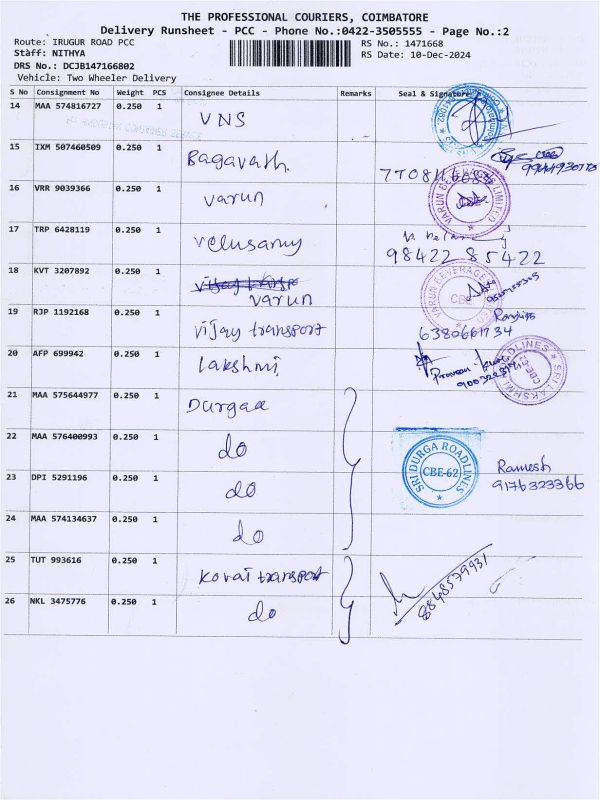 THE PROFESSIONAL COURIERS, COIMBATORE
Delivery Runsheet - PCC - Phone No.:0422-3505555 - Page No.:2
Route: IRUGUR ROAD PCC RS No.: 1471668
Staff: NITHYA RS Date: 10-Dec-2024
DRS No.: DCJB147166802
Vehicle: Two Wheeler Delivery
S No Consignment No Weight PCS Consignee Details Remarks Seal & Signature
14 MAA 574816727 0.250 1 VNS
15 IXM 507460509 0.250 1 Bagavath.
16 VRR 9039366 0.250 1 varun
VARUN BEVERAGES LIMITED
17 TRP 6428119 0.250 1 velusamy
98422 85422
18 KVT 3207892 0.250 1 varun
VARUN BEVERAGES LIMITED
CBE
19 RJP 1192168 0.250 1 vijay transport
6380661734
20 AFP 699942 0.250 1 Lakshmi
SRI LAKSHMI ROADLINES
21 MAA 575644977 0.250 1 Durgaa
22 MAA 576400993 0.250 1 do
SRI DURGA ROADLINES
CBE-62
Ramesh
9176323366
23 DPI 5291196 0.250 1 do
24 MAA 574134637 0.250 1 do
25 TUT 993616 0.250 1 Kovai transport
8848579931
26 NKL 3475776 0.250 1 do